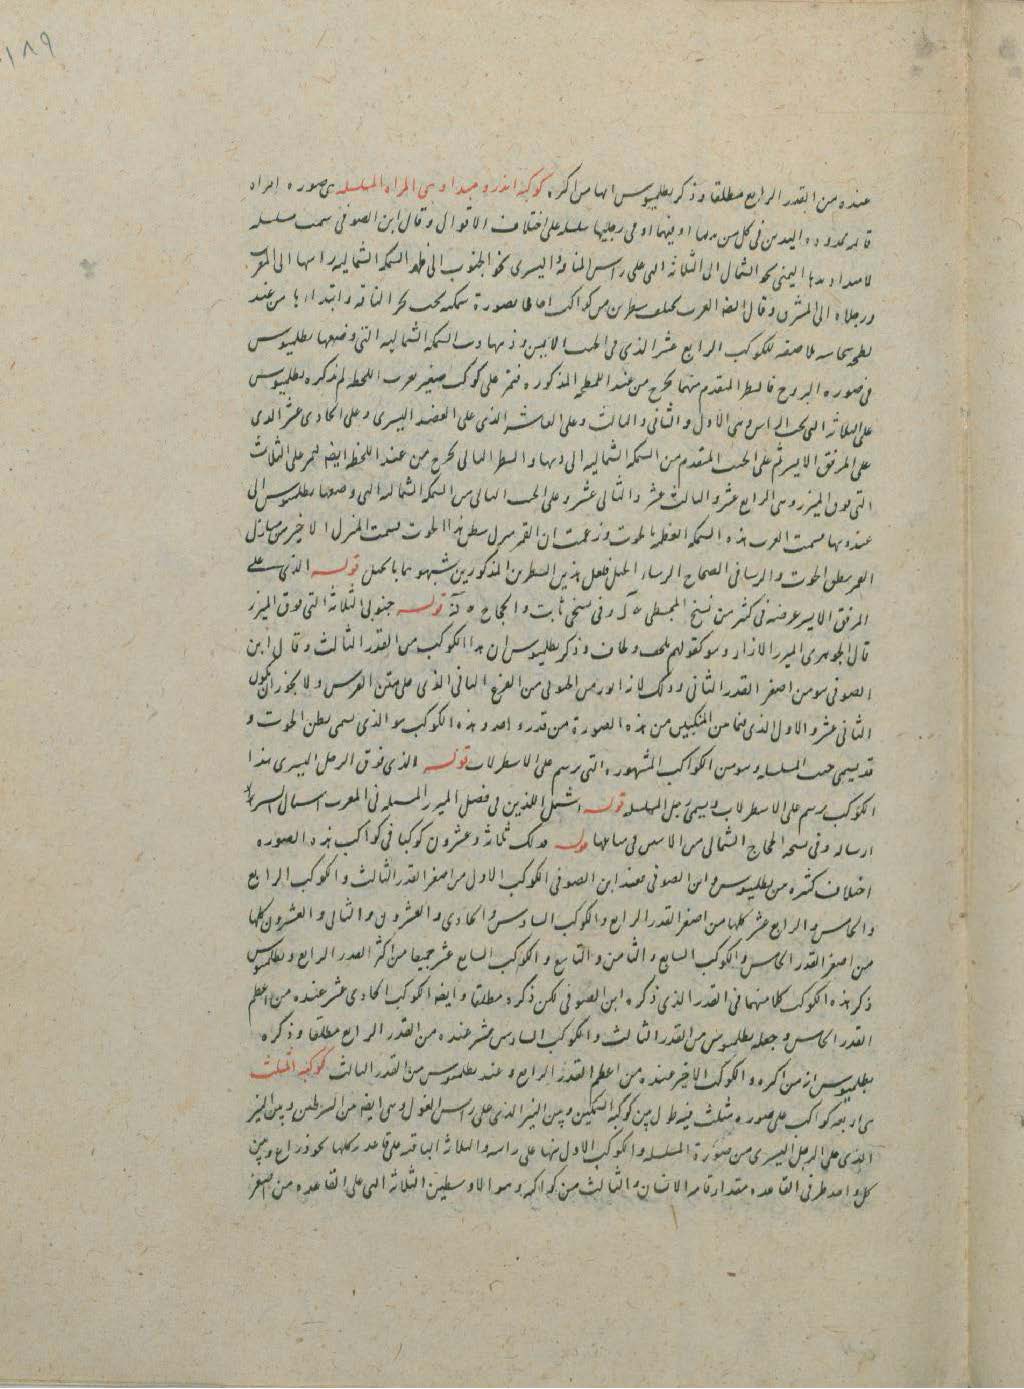 ١٨٩
عنده من القدر الرابع مطلقا وذكر بطلميوس انها من اكبره كوكبة اندروميدا وهى المراه المسلسله هى صوره امراه
قائمه ممدوده اليدين فى كل من يديها او فيهما او فى رجليها سلسله على اختلاف الاقوال وقال ابن الصوفى سميت مسلسله
لامتداد يدها اليمنى نحو الشمال الى الثلاثة التى على راس الناقة واليسرى نحو الجنوب الى ظهر السمكه الشماليه راسها الى المغرب
ورجلاه الى المشرق وقال ايضا العرب سطرين من كواكب احاطا بصورة سمكه تحت نحر الناقه وابتداءها من عند
لطخه سحابيه ملاصقه للكوكب الرابع عشر الذى فى الجنب الايمن وذنبها ذنب السمكه الشماليه التى وضعها بطلميوس
فى صوره البروج فالسطر المتقدم منهما يخرج من عند اللطخه المذكوره فيمر على كوكب صغير بقرب اللطخه لم يذكره بطلميوس
على الثلاثة التى تحت الراس وهى الاول والثانى والثالث وعلى العاشر الذى على العضد اليسرى وعلى الحادى عشر الذى
على المرفق الايسر ثم على الجنب المتقدم من السمكه الشماليه الى ذنبها والسطر التالى يخرج من عند اللطخه ايضا فيمر على الثلاث
التى فوق الميزر وهى الرابع عشر والثالث عشر والثانى عشر وعلى الجنب التالى من السمكه الشماليه التى وضعها بطلميوس الى
عند ذنبها فسمت العرب هذه السمكه العظيمه بالحوت وزعمت ان القمر ينزل ببطن هذا الحوت فسمت المنزل الاخير من منازل
القمر بطن الحوت والرشا فى الصحاح الرشاء الحبل فلعل هذين السطرين المذكورين شبهوهما بالحبل قوله الذى على
المرفق الايسر عرضه فى كثير من نسخ المجسطى وفى نسختى ثابت والحجاج قوله جنوبى الثلاثة التى فوق الميزر
قال الجوهرى الميزر الازار وهو كقولهم ملحف ولحاف وذكر بطلميوس ان هذا الكوكب من القدر الثالث وقال ابن
الصوفى هو من اصغر القدر الثانى وذلك لانه انور من الجنوبى من الفرغ الثانى الذى على متن الفرس ولا يجوز ان يكون
الثانى عشر والاول الذى فيما بين المنكبين من هذه الصورة من قدر واحد وهذه الكوكب هو الذى يسمى بطن الحوت و
قد يسمى جنب المسلسله وهو من الكواكب المشهوره التى ترسم على الاسطرلاب قوله الذى فوق الرجل اليسرى هذا
الكوكب يرسم على الاسطرلاب ويسمى رجل المسلسله قوله اشمل اللذين فى فضل الميزر المسبله فى المغرب اسبال الستر
ارساله وفى نسخه الحجاج الشمالى من الاثنين فى ساقها قوله فذلك ثلاثة وعشرون كوكبا فى كواكب هذه الصوره
اختلاف كثيره بين بطلميوس وابن الصوفى فعند ابن الصوفى الكوكب الاول من اصغر القدر الثالث والكوكب الرابع
والخامس والرابع عشر كلها من اصغر القدر الرابع والكوكب السادس والحادى والعشرون والثانى والعشرون كلها
من اصغر القدر الخامس والكوكب السابع والثامن والتاسع والكوكب السابع عشر جميعا من اكبر القدر الرابع وبطلميوس
ذكر هذه الكوكب كلا منهما فى القدر الذى ذكره ابن الصوفى لكن ذكره مطلقا وايضا الكوكب الحادى عشر عنده من اعظم
القدر الخامس وجعله بطلميوس من القدر الثالث والكوكب السادس عشر عنده من القدر الرابع مطلقا وذكره
بطلميوس انه من اكبره والكوكب الاخير عنده من اعظم القدر الرابع وعند بطلميوس من القدر الثالث كوكبة المثلث
هى اربعه كواكب على صوره مثلث فيه طول بين كوكبة السمكتين وبين النير الذى على راس الغول وهى ايضا بين الشرطين وبين النير
الذى على الرجل اليسرى من صورة المسلسله والكوكب الاول منها على راسه والثلاثة الباقيه على قاعدته كلها نحو ذراع وبين
كل واحد طرفى القاعده مقدار قامة الانسان والثالث من كواكبه وهو الاوسط من الثلاثة التى على القاعده من اصغر